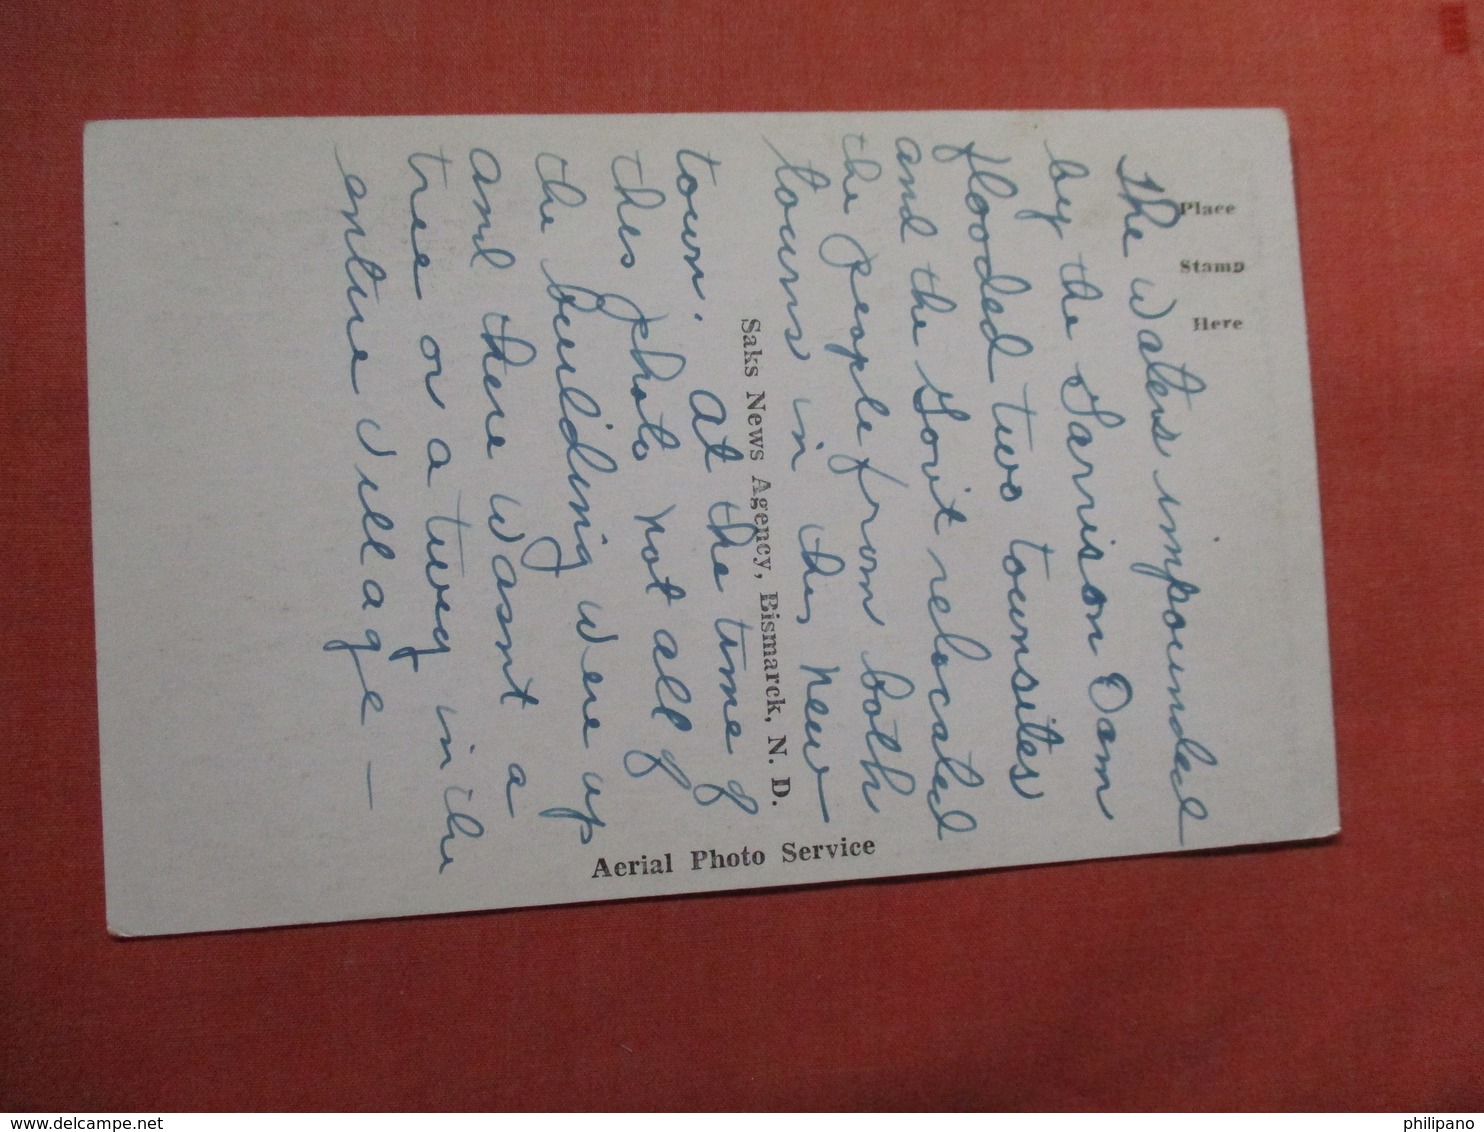 The waters impounded
by the Garrison Dam
flooded two townsites
and the Gov't relocated
the people from both
towns in this new
town. At the time of
this photo not all of
the building were up
and there wasnt a
tree or a twig in the
entire village —
Place
Stamp
Here
Saks News Agency, Bismarck, N. D.
Aerial Photo Service
https://www.delcampe.net
philipano